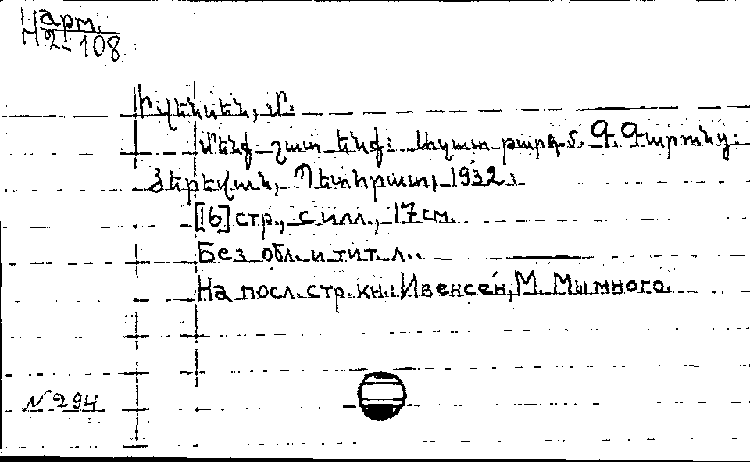 Нарм.
Н2-108
Իվենսեն, Մ.
Մենք շատ ենք: Ազատ թարգմ. Գ.
Յերեվան, Պետհրատ, 1932.
[16] стр., с илл., 17 см.
Без обл. и тит. л.
На посл. стр. кн.: Ивенсен, М. Мы много.
N 294